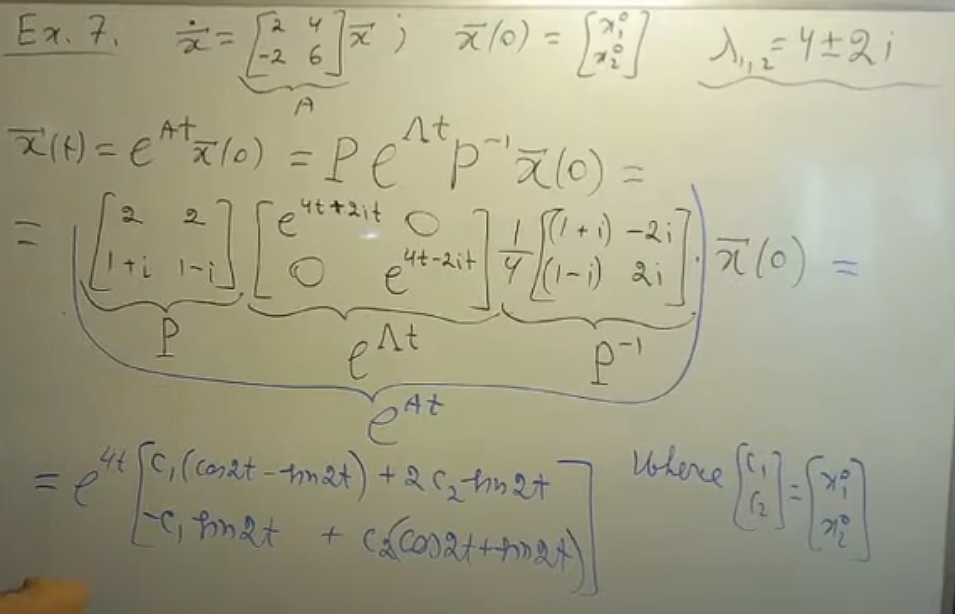 Ex. 7. ẋ = [2 4; -2 6] x⃗ ; x̄(0) = [x₁⁰; x₂⁰] λ₁,₂ = 4 ± 2i
A
x̄(t) = e^{At} x̄(0) = P e^{Λt} P⁻¹ x̄(0) =
= [2 2; 1+i 1-i] [e^{4t+2it} 0; 0 e^{4t-2it}] 1/4 [(1+i) -2i; (1-i) 2i] · x̄(0) =
P e^{Λt} P⁻¹
e^{At}
= e^{4t} [c₁(cos2t - sin2t) + 2c₂ sin2t; -c₁ sin2t + c₂(cos2t + sin2t)] Where [c₁; c₂] = [x₁⁰; x₂⁰]